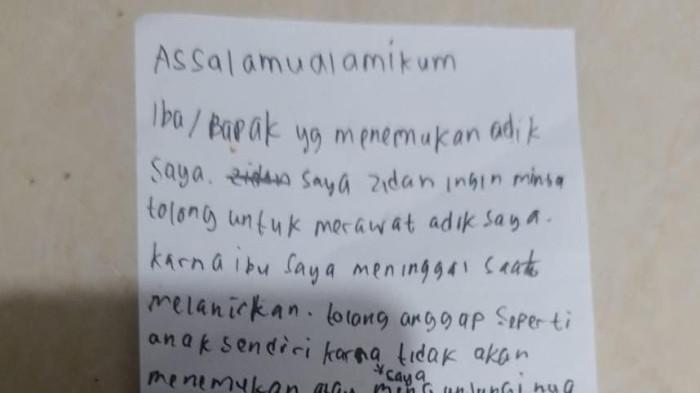 Assalamualamikum
Iba/Bapak yg menemukan adik
saya. zidan saya zidan ingin minta
tolong untuk merawat adik saya.
karna ibu saya meninggal saat
melanirkan. tolong anggap seperti
anak sendiri karna tidak akan
saya
menemukan